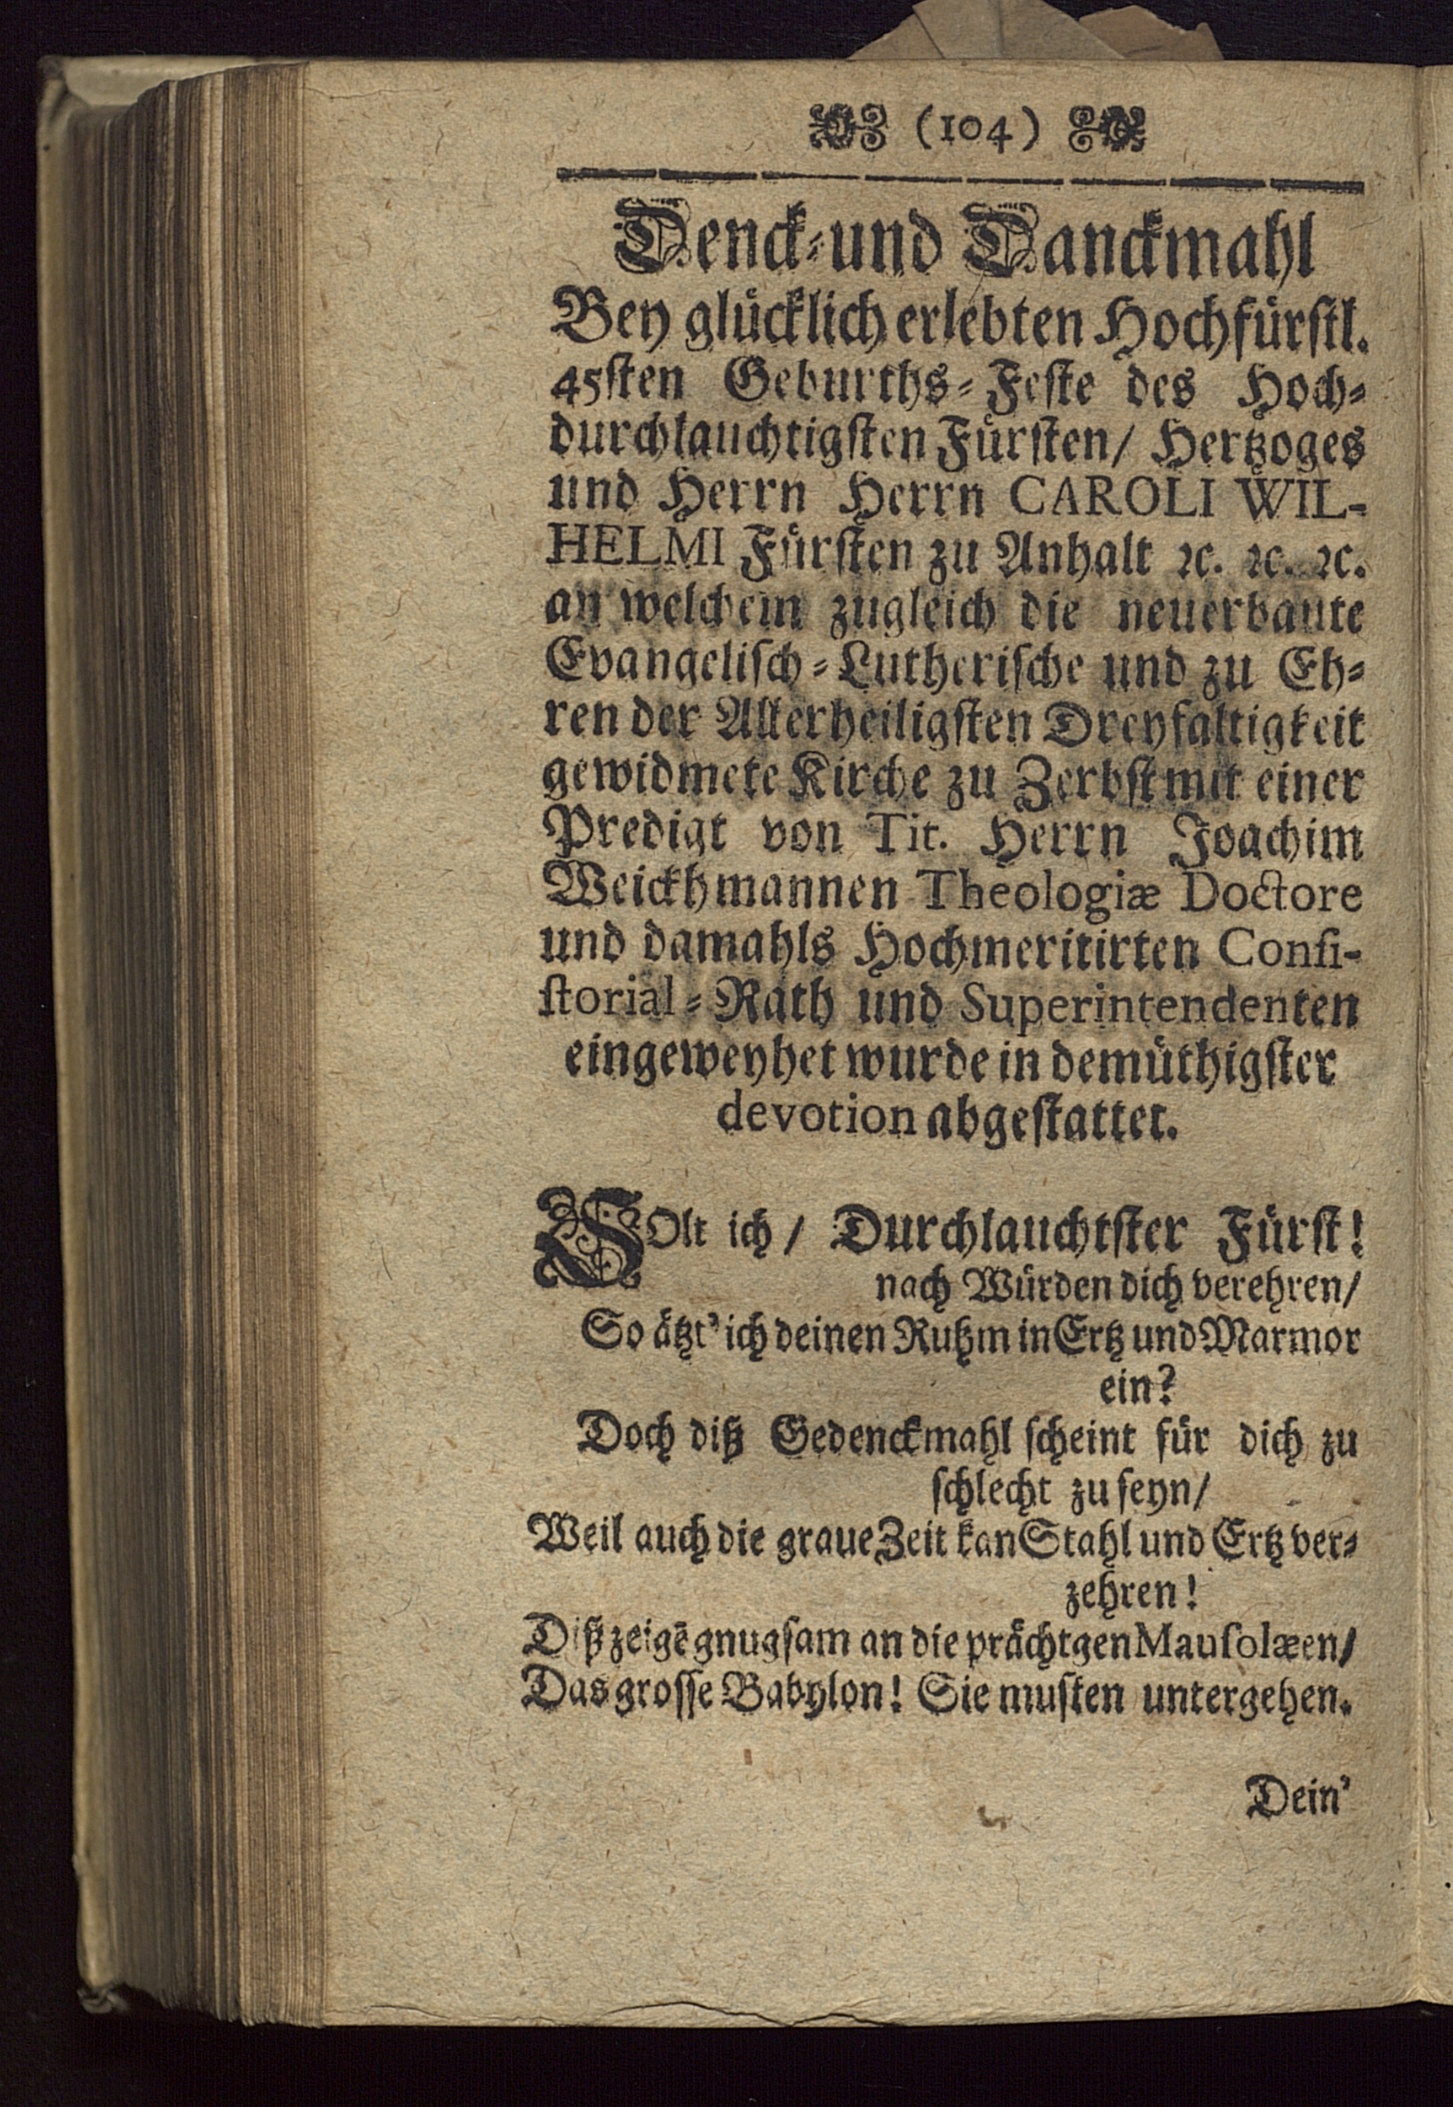 (104)
Denck-und Danckmahl
Bey glücklich erlebten Hochfürstl.
45sten Geburths-Feste des Hoch-
durchlauchtigsten Fürsten/ Hertzoges
und Herrn Herrn CAROLI WIL-
HELMI Fürsten zu Anhalt ꝛc. ꝛc. ꝛc.
an welchem zugleich die neuerbaute
Evangelisch-Lutherische und zu Eh-
ren der Allerheiligsten Dreyfaltigkeit
gewidmete Kirche zu Zerbst mit einer
Predigt von Tit. Herrn Joachim
Weickhmannen Theologiæ Doctore
und damahls Hochmeritirten Consi-
storial-Rath und Superintendenten
eingeweyhet wurde in demüthigster
devotion abgestattet.
WOlt ich/ Durchlauchtster Fürst!
nach Würden dich verehren/
So ätzt' ich deinen Ruhm in Ertz und Marmor
ein?
Doch diß Gedenckmahl scheint für dich zu
schlecht zu seyn/
Weil auch die graue Zeit kan Stahl und Ertz ver-
zehren!
Diß zeigē gnugsam an die prächtgen Mausolæen/
Das grosse Babylon! Sie musten untergehen.
Dein'